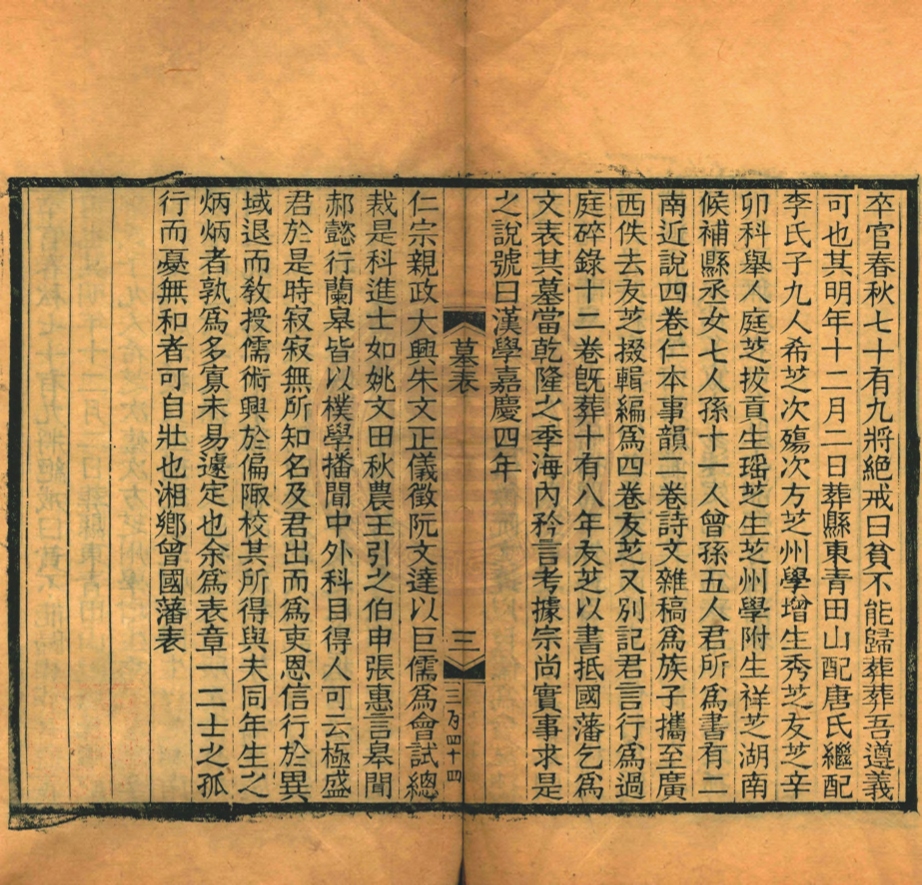 卒官春秋七十有九將絕戒曰貧不能歸葬葬吾遵義
可也其明年十二月二日葬縣東青田山配唐氏繼配
李氏子九人希芝次殤次方芝州學增生秀芝友芝辛
卯科舉人庭芝拔貢生瑤芝生芝州學附生祥芝湖南
候補縣丞女七人孫十一人曾孫五人君所爲書有二
南近說四卷仁本事韻二卷詩文雜稿爲族子攜至廣
西佚去友芝掇輯編爲四卷友芝又別記君言行爲過
庭碎錄十二卷旣葬十有八年友芝以書抵國藩乞爲
文表其墓當乾隆之季海內矜言考據宗尚實事求是
之說號曰漢學嘉慶四年
墓表
三
三百四十四
仁宗親政大興朱文正儀徵阮文達以巨儒爲會試總
裁是科進士如姚文田秋農王引之伯申張惠言皋聞
郝懿行蘭皋皆以樸學播聞中外科目得人可云極盛
君於是時寂寂無所知名及君出而爲吏恩信行於異
域退而敎授儒術興於偏陬校其所得與夫同年生之
炳炳者孰爲多寡未易遽定也余爲表章一二士之孤
行而憂無和者可自壯也湘鄉曾國藩表